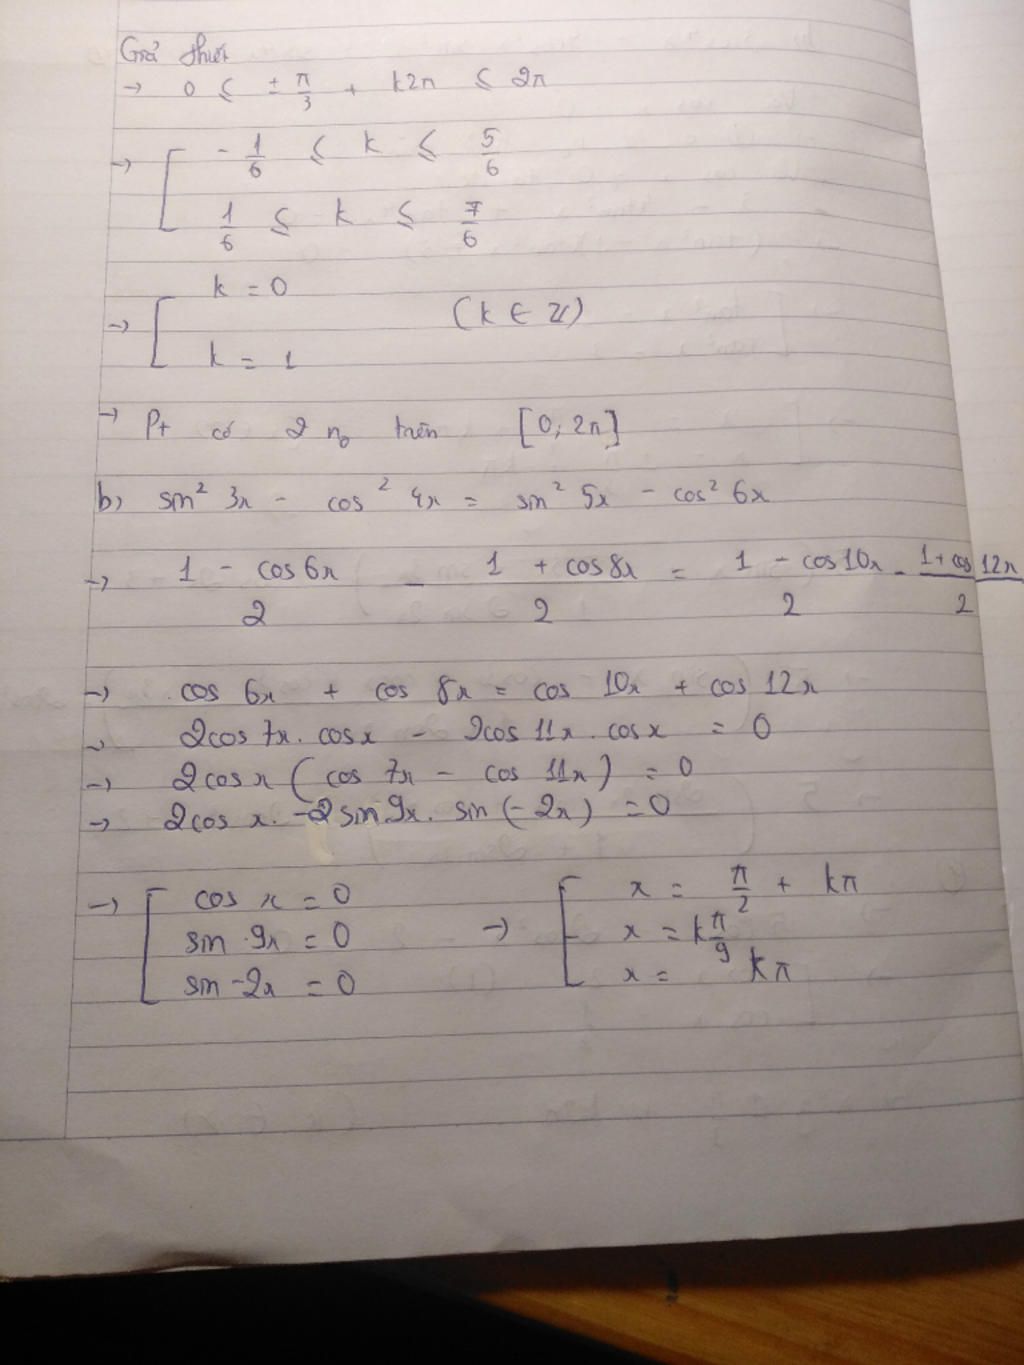 Giả thiết
→ 0 ≤ ± π/3 + k2π ≤ 2π
→ [ -1/6 ≤ k ≤ 5/6
1/6 ≤ k ≤ 7/6
→ [ k = 0
(k ∈ Z)
k = 1
→ Pt có 2 n₀ trên [0; 2π]
b) sin² 3x - cos² 4x = sin² 5x - cos² 6x
→ (1 - cos6x)/2 - (1 + cos8x)/2 = (1 - cos10x)/2 - (1 + cos12x)/2
→ cos 6x + cos 8x = cos 10x + cos 12x
→ 2cos 7x . cosx - 2cos 11x . cosx = 0
→ 2cosx (cos 7x - cos 11x) = 0
→ 2cos x . -2 sin 9x . sin (-2x) = 0
→ [ cos x = 0 → [ x = π/2 + kπ
sin 9x = 0 x = kπ/9
sin -2x = 0 x = kπ